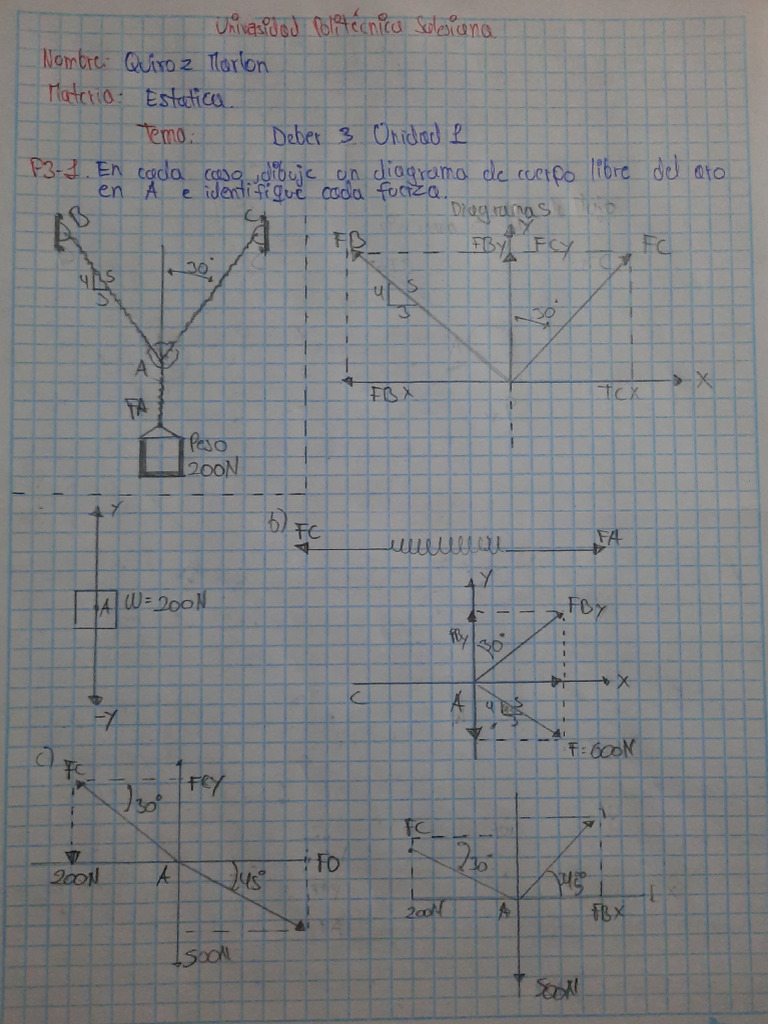 Univesidad Politécnica Salesiana
Nombre: Quiroz Marlon
Materia: Estatica.
Tema: Deber 3 Unidad 1
P3-1. En cada caso, dibuje un diagrama de cuerpo libre del aro
en A e identifique cada fuerza.
Diagramas
B
C
30°
4 5
3
A
FA
Peso
200N
FB
FBY
Y
FCY
FC
4 5
3
30°
FBX
TCX
X
Y
A
W=200N
-Y
b)
FC
FA
Y
FBy
FBy
30°
C
A
X
4
F=600N
c)
FC
FCY
30°
200N
A
45°
FD
500N
FC
30°
200N
A
45°
FBX
500N